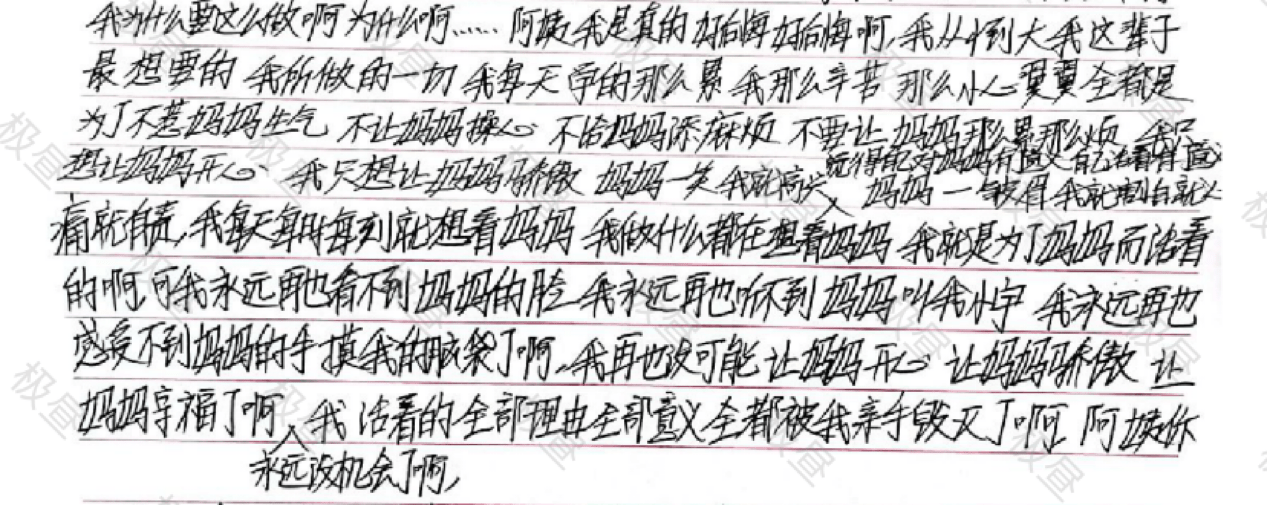 我为什么要这么做啊为什么啊……阿姨我是真的好后悔好后悔啊,我从小到大我这辈子
最想要的 我所做的一切 我每天学的那么累 我那么辛苦 那么小心翼翼全都是
为了不惹妈妈生气 不让妈妈操心 不给妈妈添麻烦 不要让妈妈那么累那么烦 我只
想让妈妈开心 我只想让妈妈骄傲 妈妈一笑我就高兴 觉得自己对妈妈有意义自己活着有意义 妈妈一皱 我就
痛就自责,我每天每时每刻就想着妈妈 我做什么都在想着妈妈 我就是为了妈妈而活着
的啊,可我永远再也看不到妈妈的脸 我永远再也听不到妈妈叫我小宇 我永远再也
感受不到妈妈的手摸我的脑袋了啊,我再也没可能让妈妈开心 让妈妈骄傲 让
妈妈享福了啊 永远没机会了啊, 我活着的全部理由全部意义全都被我亲手毁灭了啊,阿姨你
极昼